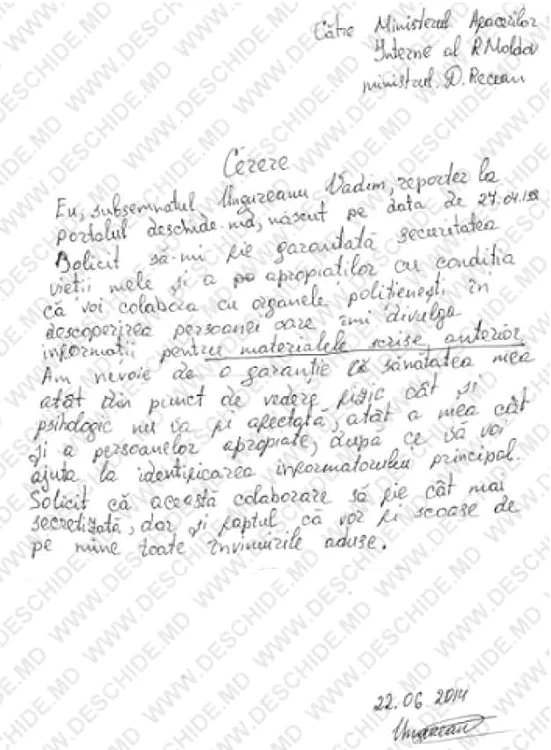 Către Ministerul Afacerilor
Interne al R Moldov
ministrul D. Recean
Cerere
Eu, subsemnatul Ungureanu Vadim, reporter la
portalul deschide.md, născut pe data de 27.04.198
Solicit să-mi fie garantată securitatea
vieții mele și a apropiaților cu condiția
că voi colabora cu organele polițienești în
descoperirea persoanei care îmi divulga
informații pentru materialele scrise anterior
Am nevoie de o garanție că sănătatea mea
atât din punct de vedere fizic cât și
psihologic nu va fi afectată, atât a mea cât
și a persoanelor apropiate, după ce vă voi
ajuta la identificarea informatorului principal.
Solicit că această colaborare să fie cât mai
secretizată, dar și faptul că vor fi scoase de
pe mine toate învinuirile aduse.
22.06 2014
Ungureanu
WWW.DESCHIDE.MD